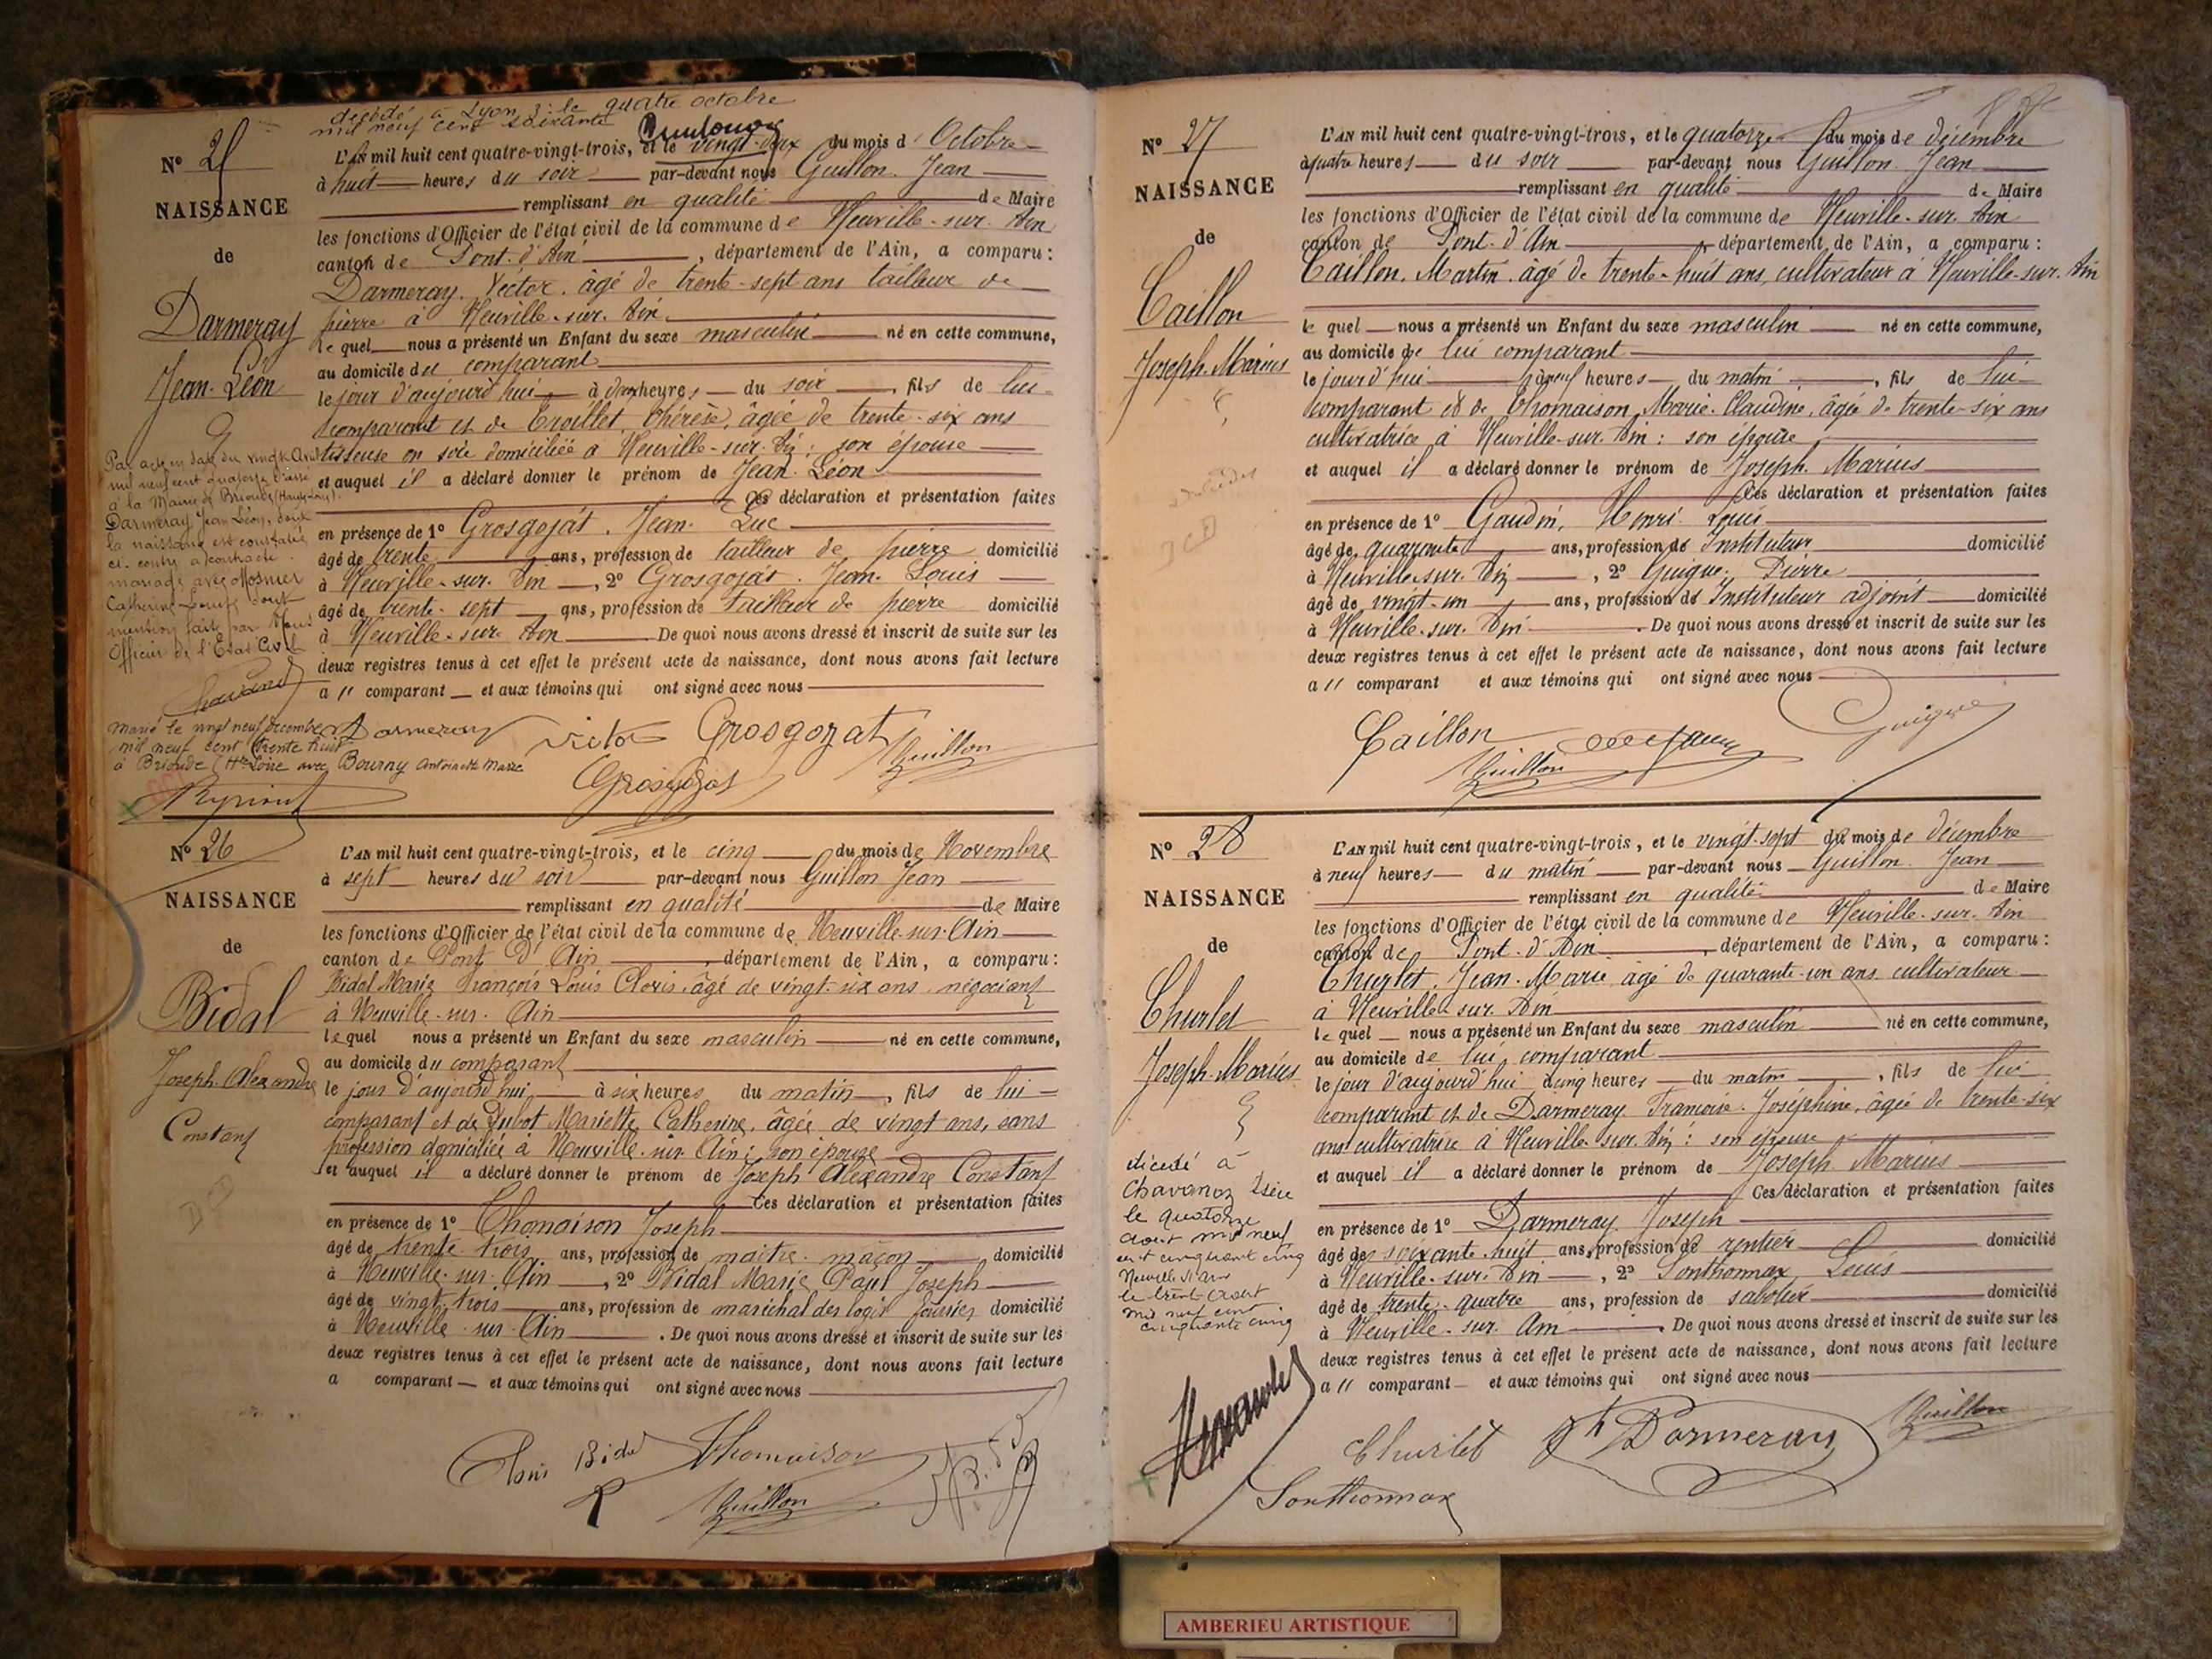 décédé à Lyon 3e le quatre octobre
mil neuf cent soixante
N° 25
NAISSANCE
de
Darmeray
Jean-Léon
L'AN mil huit cent quatre-vingt-trois, et le vingt-deux du mois d'Octobre
à huit heures du soir par-devant nous Guillon Jean
remplissant en qualité de Maire
les fonctions d'Officier de l'état civil de la commune de Neuville-sur-Ain
canton de Pont-d'Ain, département de l'Ain, a comparu :
Darmeray Victor, âgé de trente-sept ans tailleur de
pierre à Neuville-sur-Ain
le quel nous a présenté un Enfant du sexe masculin né en cette commune,
au domicile du comparant
le jour d'aujourd'hui à deux heures du soir, fils de lui
comparant et de Troillet Thérèse, âgée de trente-six ans
tisseuse en soie domiciliée à Neuville-sur-Ain ; son épouse
et auquel il a déclaré donner le prénom de Jean-Léon
Ces déclaration et présentation faites
en présence de 1° Grosgojat Jean-Luc
âgé de trente ans, profession de tailleur de pierre domicilié
à Neuville-sur-Ain, 2° Grosgojat Jean-Louis
âgé de trente-sept ans, profession de tailleur de pierre domicilié
à Neuville-sur-Ain. De quoi nous avons dressé et inscrit de suite sur les
deux registres tenus à cet effet le présent acte de naissance, dont nous avons fait lecture
au comparant et aux témoins qui ont signé avec nous
Par acte en date du vingt Avril
mil neuf cent quatorze dressé
à la Mairie de Brioude (Haute-Loire)
Darmeray Jean Léon, dont
la naissance est constatée
ci-contre a contracté
mariage avec Mosnier
Catherine Louise dont
mention faite par Nous
Officier de l'Etat Civil
Marié le vingt neuf décembre
mil neuf cent trente huit
à Brioude (Hte Loire avec Bourny Antoinette Marie
Darmeray Victor Grosgozat Guillon
Grosgojat
N° 26
NAISSANCE
de
Bidal
Joseph-Alexandre
Constant
L'AN mil huit cent quatre-vingt-trois, et le cinq du mois de Novembre
à sept heures du soir par-devant nous Guillon Jean
remplissant en qualité de Maire
les fonctions d'Officier de l'état civil de la commune de Neuville-sur-Ain
canton de Pont d'Ain, département de l'Ain, a comparu :
Bidal Marie François Louis Clovis, âgé de vingt-six ans négociant
à Neuville-sur-Ain
le quel nous a présenté un Enfant du sexe masculin né en cette commune,
au domicile du comparant
le jour d'aujourd'hui à six heures du matin, fils de lui
comparant et de Dubot Mariette Catherine, âgée de vingt ans, sans
profession domiciliée à Neuville-sur-Ain ; son épouse
et auquel il a déclaré donner le prénom de Joseph Alexandre Constant
Ces déclaration et présentation faites
en présence de 1° Thomaison Joseph
âgé de trente-trois ans, profession de maître-maçon domicilié
à Neuville-sur-Ain, 2° Bidal Marie Paul Joseph
âgé de vingt-trois ans, profession de maréchal des logis fourrier domicilié
à Neuville-sur-Ain. De quoi nous avons dressé et inscrit de suite sur les
deux registres tenus à cet effet le présent acte de naissance, dont nous avons fait lecture
a comparant et aux témoins qui ont signé avec nous
Clovis Bidal Thomaison
Guillon
N° 27
NAISSANCE
de
Caillon
Joseph-Marius
L'AN mil huit cent quatre-vingt-trois, et le quatorze du mois de décembre
à quatre heures du soir par-devant nous Guillon Jean
remplissant en qualité de Maire
les fonctions d'Officier de l'état civil de la commune de Neuville-sur-Ain
canton de Pont-d'Ain, département de l'Ain, a comparu :
Caillon Martin âgé de trente-huit ans, cultivateur à Neuville-sur-Ain
le quel nous a présenté un Enfant du sexe masculin né en cette commune,
au domicile de lui comparant
le jour d'hui à neuf heures du matin, fils de lui
comparant et de Thomaison Marie-Claudine, âgée de trente-six ans
cultivatrice à Neuville-sur-Ain : son épouse
et auquel il a déclaré donner le prénom de Joseph Marius
Ces déclaration et présentation faites
en présence de 1° Gaudin, Henri Louis
âgé de quarante ans, profession de Instituteur domicilié
à Neuville-sur-Ain, 2° Guigue Pierre
âgé de vingt-un ans, profession de Instituteur adjoint domicilié
à Neuville-sur-Ain. De quoi nous avons dressé et inscrit de suite sur les
deux registres tenus à cet effet le présent acte de naissance, dont nous avons fait lecture
au comparant et aux témoins qui ont signé avec nous
Caillon Guigue
Guillon
N° 28
NAISSANCE
de
Churlet
Joseph-Marius
L'AN mil huit cent quatre-vingt-trois, et le vingt-sept du mois de décembre
à neuf heures du matin par-devant nous Guillon Jean
remplissant en qualité de Maire
les fonctions d'Officier de l'état civil de la commune de Neuville-sur-Ain
canton de Pont-d'Ain, département de l'Ain, a comparu :
Churlet Jean-Marie âgé de quarante-un ans cultivateur
à Neuville-sur-Ain
le quel nous a présenté un Enfant du sexe masculin né en cette commune,
au domicile de lui comparant
le jour d'aujourd'hui à cinq heures du matin, fils de lui
comparant et de Darmeray Françoise-Joséphine, âgée de trente-six
ans cultivatrice à Neuville-sur-Ain : son épouse
et auquel il a déclaré donner le prénom de Joseph Marius
Ces déclaration et présentation faites
en présence de 1° Darmeray Joseph
âgé de soixante-huit ans, profession de rentier domicilié
à Neuville-sur-Ain, 2° Sonthonnax Louis
âgé de trente-quatre ans, profession de sabotier domicilié
à Neuville-sur-Ain. De quoi nous avons dressé et inscrit de suite sur les
deux registres tenus à cet effet le présent acte de naissance, dont nous avons fait lecture
au comparant et aux témoins qui ont signé avec nous
décédé à
Chavanoz Isère
le quatorze
août mil neuf
cent cinquante cinq
Neuville s/ Ain
le trente août
mil neuf cent
cinquante cinq
Churlet Jh Darmeray Guillon
Sonthonnax
AMBERIEU ARTISTIQUE